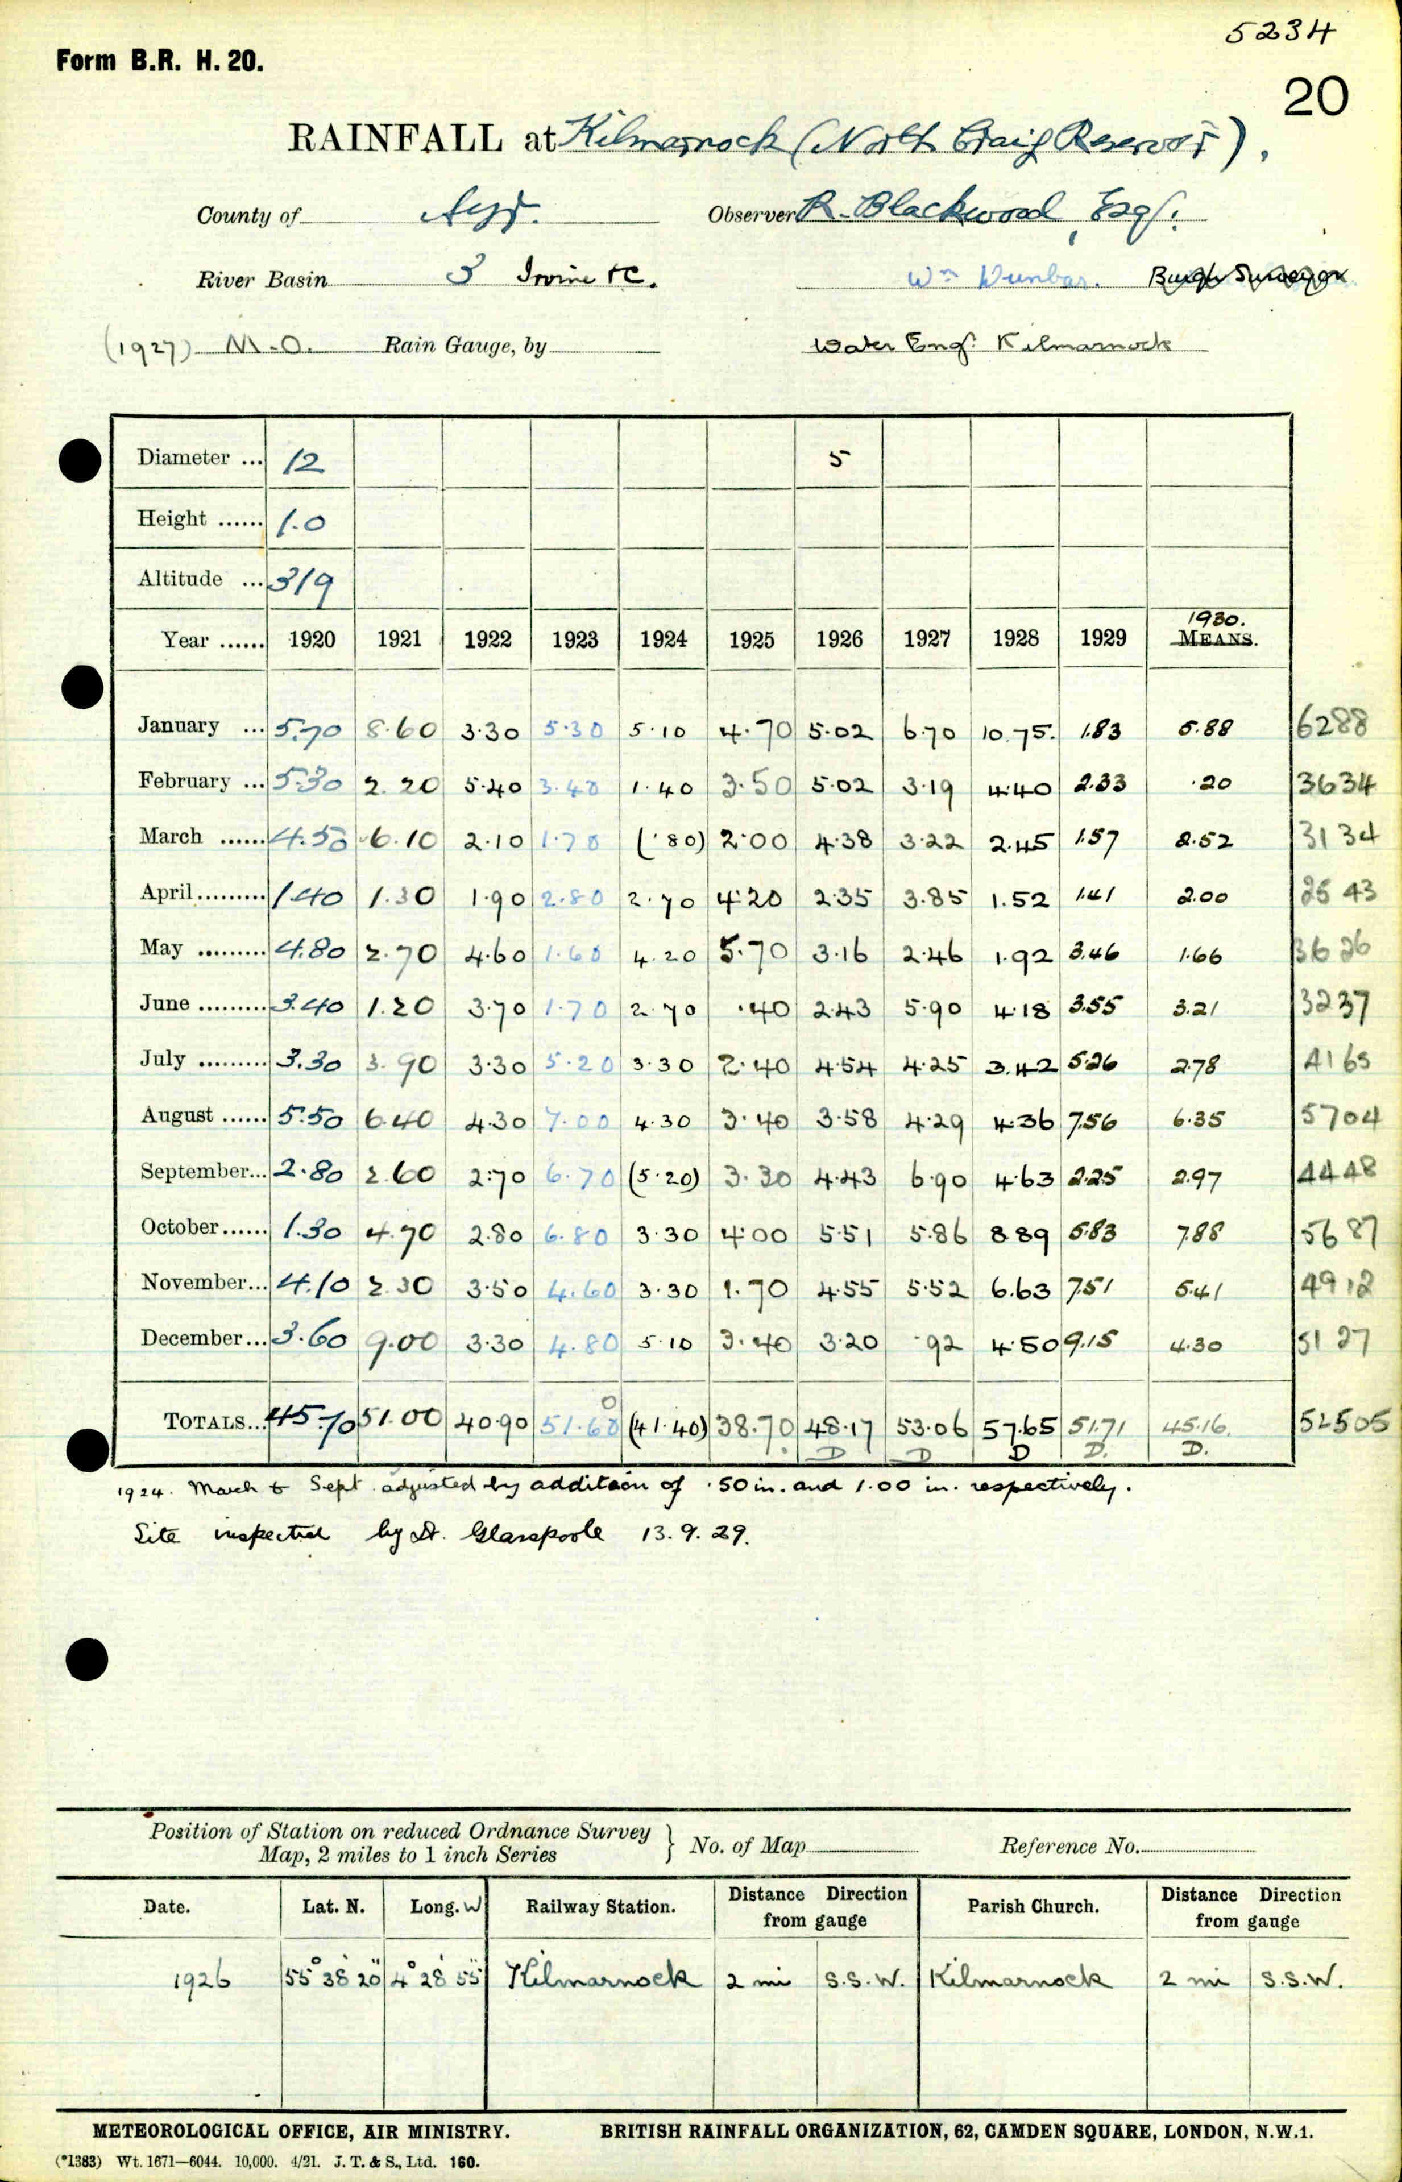 5234
Form B.R. H. 20.
20
RAINFALL at Kilmarnock (North Craig Reservoir).
County of Ayr. Observer R. Blackwood, Esq.
River Basin 3 Irvine &c. Wm Dunbar. Burgh Surveyor
(1927) M.O. Rain Gauge, by Water Engr. Kilmarnock
Diameter ... 12 5
Height ...... 1.0
Altitude ... 319
1930.
Year ...... 1920 1921 1922 1923 1924 1925 1926 1927 1928 1929 MEANS.
January ... 5.70 8.60 3.30 5.30 5.10 4.70 5.02 6.70 10.75. 1.83 5.88 6288
February ... 5.30 2.20 5.40 3.40 1.40 3.50 5.02 3.19 4.40 2.33 .20 3634
March ...... 4.50 6.10 2.10 1.70 (.80) 2.00 4.38 3.22 2.45 1.57 2.52 3134
April ......... 1.40 1.30 1.90 2.80 2.70 4.20 2.35 3.85 1.52 1.41 2.00 2543
May ......... 4.80 2.70 4.60 1.60 4.20 5.70 3.16 2.46 1.92 3.46 1.66 3626
June ......... 3.40 1.20 3.70 1.70 2.70 .40 2.43 5.90 4.18 3.55 3.21 3237
July ......... 3.30 3.90 3.30 5.20 3.30 2.40 4.54 4.25 3.42 5.26 2.78 4165
August ...... 5.50 6.40 4.30 7.00 4.30 3.40 3.58 4.29 4.36 7.56 6.35 5704
September... 2.80 2.60 2.70 6.70 (5.20) 3.30 4.43 6.90 4.63 2.25 2.97 4448
October...... 1.30 4.70 2.80 6.80 3.30 4.00 5.51 5.86 8.89 5.83 7.88 5687
November... 4.10 2.30 3.50 4.60 3.30 1.70 4.55 5.52 6.63 7.51 5.41 4912
December... 3.60 9.00 3.30 4.80 5.10 3.40 3.20 .92 4.50 9.15 4.30 5127
0
TOTALS... 45.70 51.00 40.90 51.60 (41.40) 38.70 48.17 53.06 57.65 51.71 45.16. 52505
D D D D. D.
1924. March & Sept. adjusted by addition of .50 in. and 1.00 in. respectively.
Site inspected by Dr. Glasspoole 13.9.29.
Position of Station on reduced Ordnance Survey
Map, 2 miles to 1 inch Series } No. of Map Reference No.
Date. Lat. N. Long. W Railway Station. Distance Direction from gauge Parish Church. Distance Direction from gauge
1926 55° 38' 20" 4° 28' 55" Kilmarnock 2 mi S.S.W. Kilmarnock 2 mi S.S.W.
METEOROLOGICAL OFFICE, AIR MINISTRY. BRITISH RAINFALL ORGANIZATION, 62, CAMDEN SQUARE, LONDON, N.W.1.
(*1383) Wt. 1671—6044. 10,000. 4/21. J. T. & S., Ltd. 160.